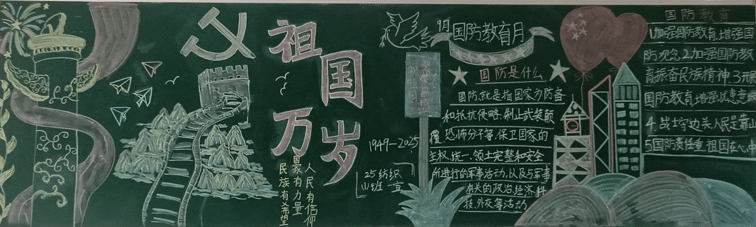 祖国
万岁
1949-2025
25纺织
人民有信仰
民族有希望
9月国防教育月
国防是什么
国防就是指国家为防备
和抵抗侵略,制止武装颠
覆恐怖分子等,保卫国家的
主权统一、领土完整和安全
所进行的军事活动,以及与军事
有关的政治、经济、科
技、外交等活动
国防教育
1.加强国防教育,增强国
防观念2.加强国防教
育,振奋民族精神3.
国防教育,增强
4.战士守边关人民
5.国防责任重,祖国在心中